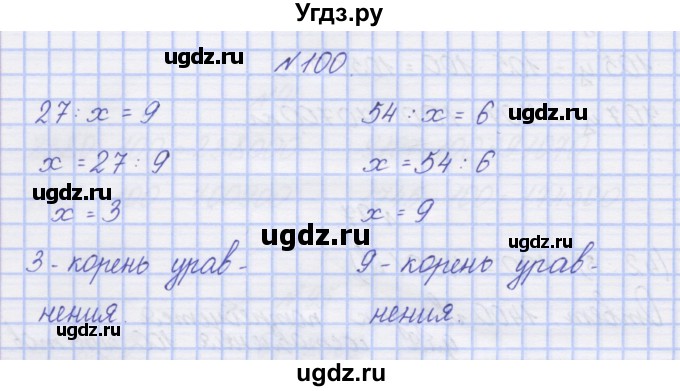 Угдз.ру
№100.
27 : x = 9
x = 27 : 9
x = 3
3 - корень урав-
нения.
54 : x = 6
x = 54 : 6
x = 9
9 - корень урав-
нения.
ugdz.ru
ugdz.ru
ugdz.ru
ugdz.ru
ugdz.ru
ugdz.ru
ugdz.ru
Угдз.ру